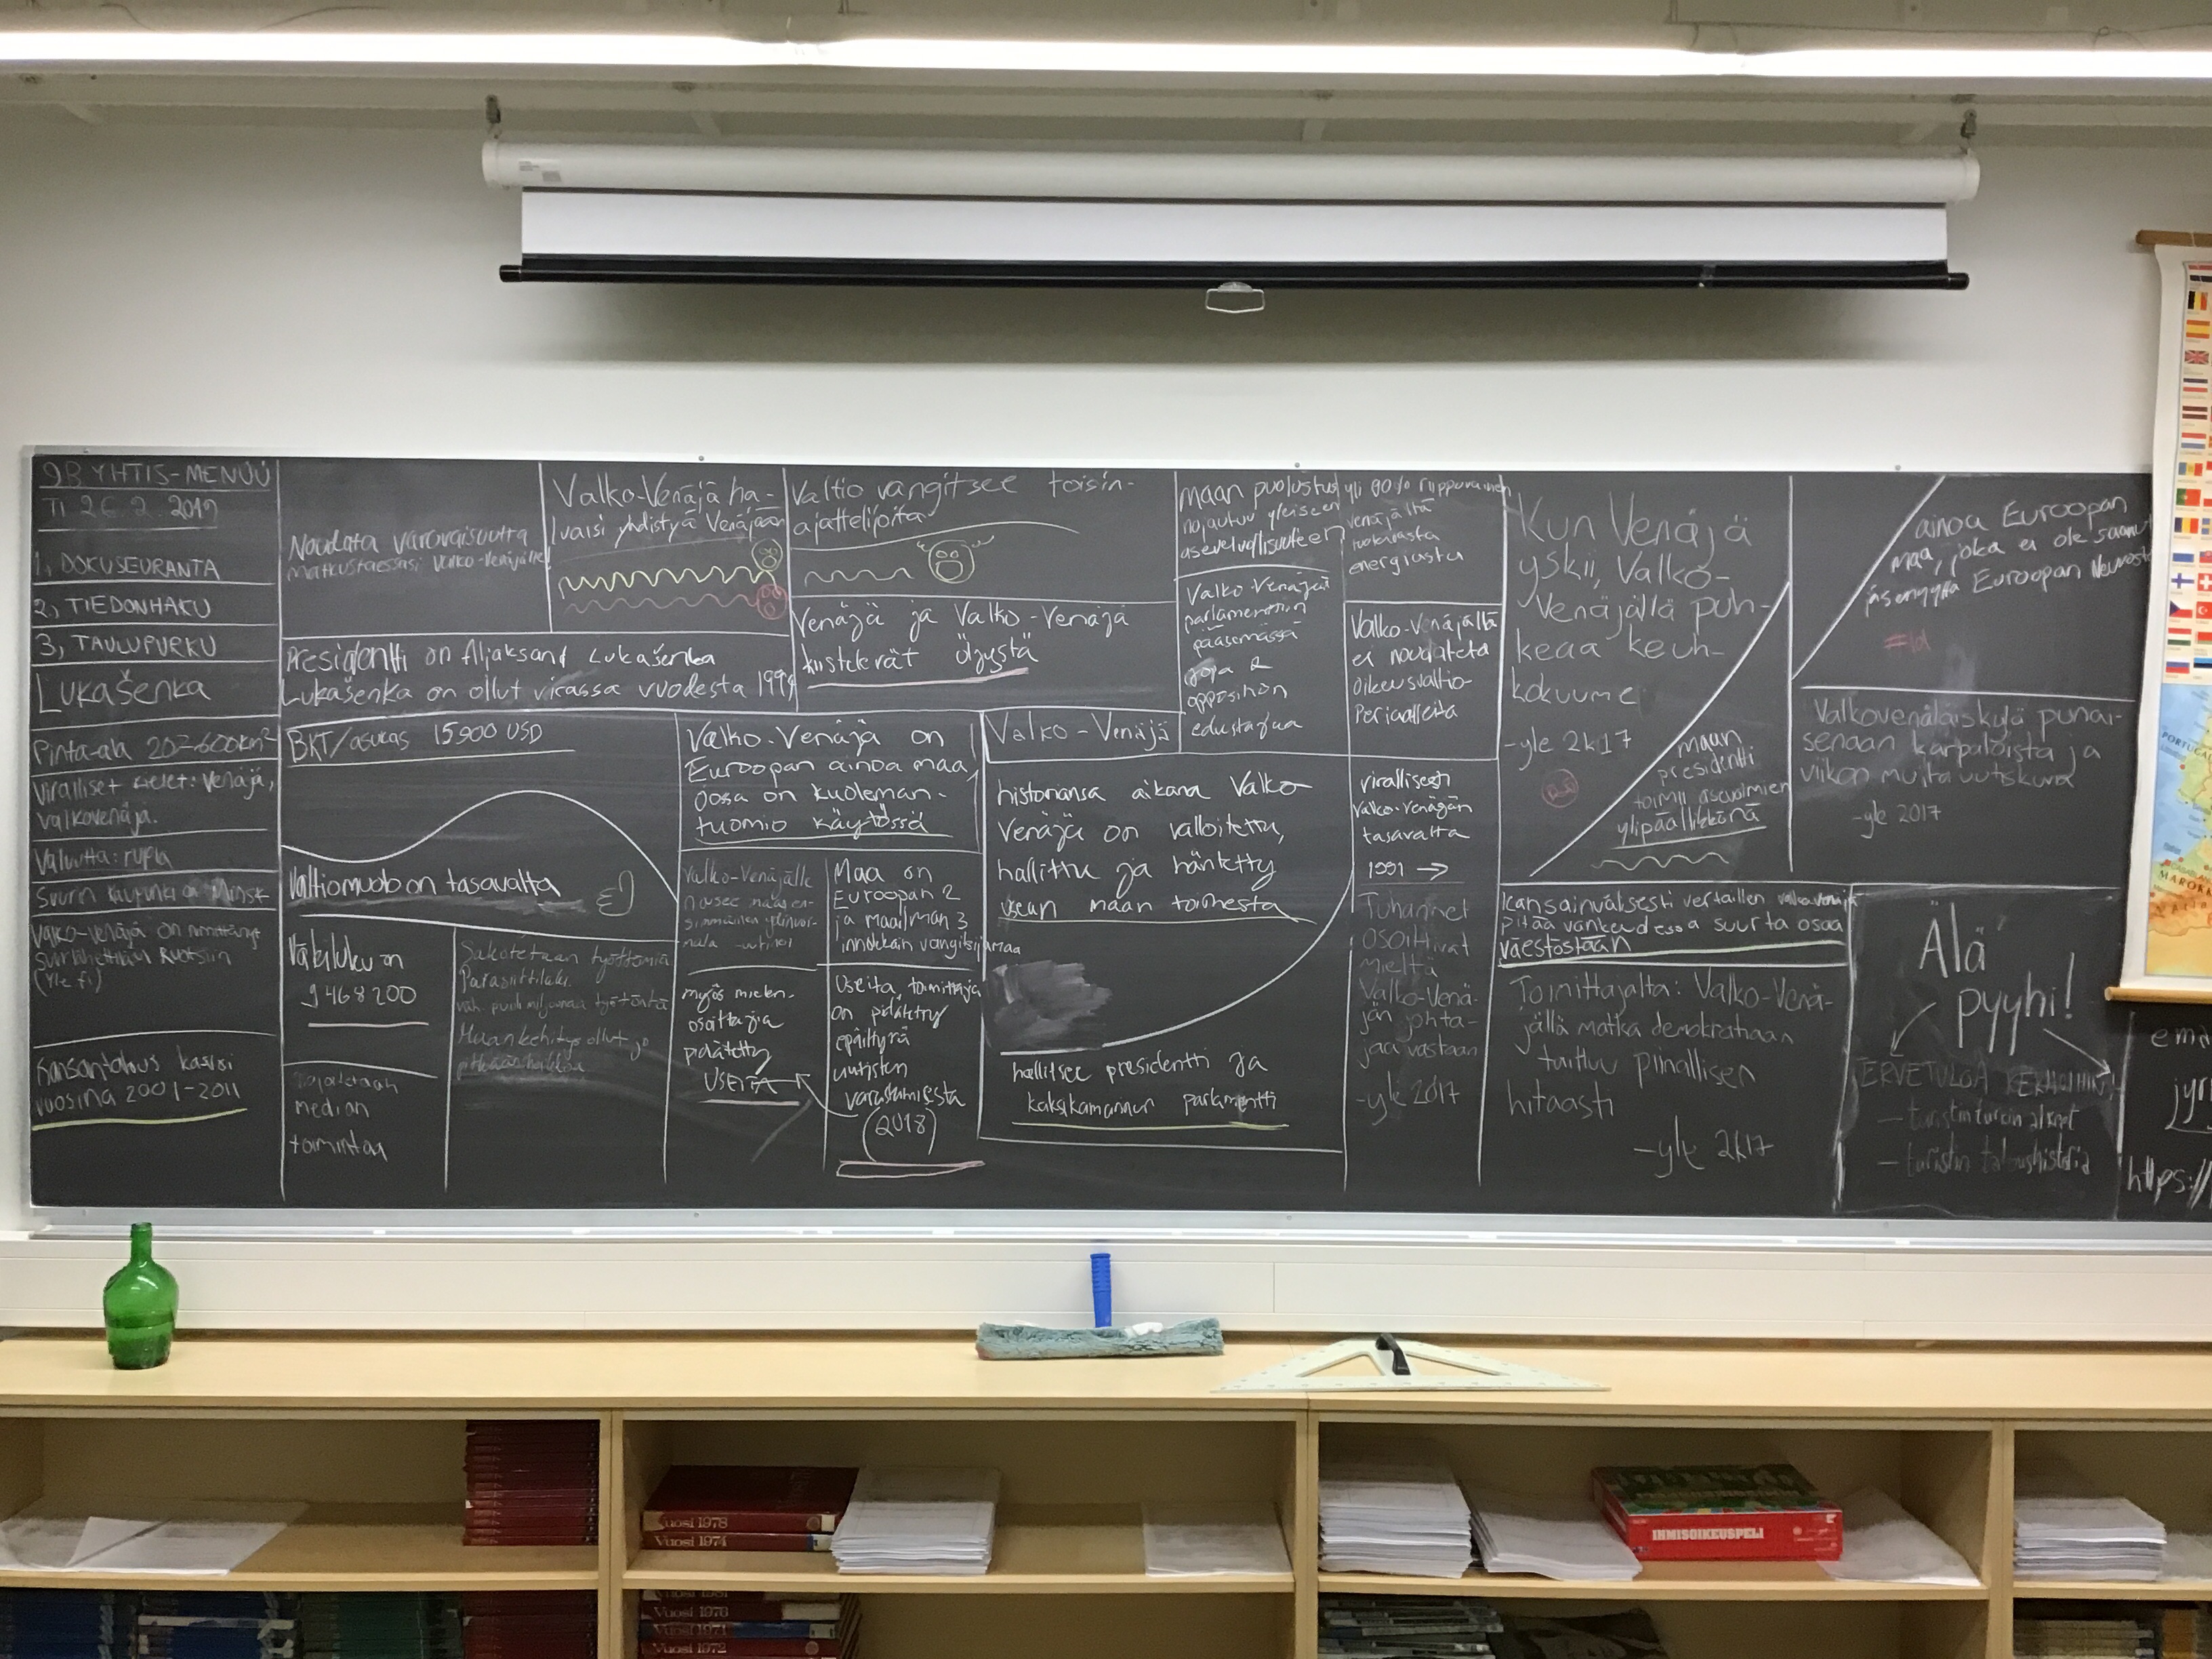 9B YHTIS-MENUU
TI 26.2.2019
1, DOKUSEURANTA
2, TIEDONHAKU
3, TAULUPURKU
LUKAŠENKA
Pinta-ala 207 600km²
Viralliset kielet: venäjä,
valkovenäjä.
Valuutta: rupla
Suurin kaupunki on Minsk
Valko-Venäjä on nimittänyt
suurlähettilään Ruotsiin
(Yle.fi)
Kansantalous kasvoi
vuosina 2001-2011
Noudata varovaisuutta
matkustaessasi Valko-Venäjälle
Valko-Venäjä ha-
luaisi yhdistyä Venäjään
Presidentti on Aljaksand Lukašenka
Lukašenka on ollut virassa vuodesta 1994
BKT/asukas 15900 USD
Valtiomuoto on tasavalta
Väkiluku on
9 468 200
median
toimintaa
Sakotetaan työttömiä
Parasiittilaki
väh. puoli miljoonaa työtöntä
Maan kehitys ollut jo
pitkään
Valtio vangitsee toisin-
ajattelijoita
Venäjä ja Valko-Venäjä
kiistelevät öljystä
Valko-Venäjä on
Euroopan ainoa maa,
jossa on kuoleman-
tuomio käytössä
Valko-Venäjälle
nousee
mala
myös mielen-
osoittajia
pidätetty
USEITA
Maa on
Euroopan 2
ja maailman 3
innokkain vangitsijamaa
Useita toimittajia
on pidätetty
epäiltynä
uutisten
varastamisesta
(2018)
Valko-Venäjä
historiansa aikana Valko-
Venäjä on valloitettu,
hallittu ja häntetty
usean maan toimesta
hallitsee presidentti ja
kaksikamarinen parlamentti
maan puolustus
nojautuu yleiseen
asevelvollisuuteen
Valko-Venäjän
parlamenttiin
pääsemässä
jopa 2
opposition
edustajaa
yli 80% riippuvainen
venäjältä
tuotavasta
energiasta
Valko-Venäjällä
ei noudateta
oikeusvaltio-
periaatteita
virallisesti
Valko-Venäjän
tasavalta
1991 →
Tuhannet
osoittivat
mieltä
Valko-Venä-
jän johta-
jaa vastaan
-yle 2017
Kun Venäjä
yskii, Valko-
Venäjällä puh-
keaa keuh-
kokuume
-yle 2k17
maan
presidentti
toimii asevoimien
ylipäällikkönä
ainoa Euroopan
maa, joka ei ole saanut
jäsenyyttä Euroopan Neuvost
#lol
Valkovenäläiskylä punai-
senaan karpaloista ja
viikon muita uutiskuvia
-yle 2017
Kansainvälisesti vertaillen valkovenäjä
pitää vankeudessa suurta osaa
väestöstään
Toimittajalta: Valko-Venä-
jällä matka demokratiaan
taittuu piinallisen
hitaasti
-yle 2k17
Älä
pyyhi!
TERVETULOA
— turistin
— turistin taloushistoria
https://
PORTUGAL
MAROKKO
Vuosi 1978
Vuosi 1974
Vuosi 1976
Vuosi 1971
Vuosi 1972
IHMISOIKEUSPELI